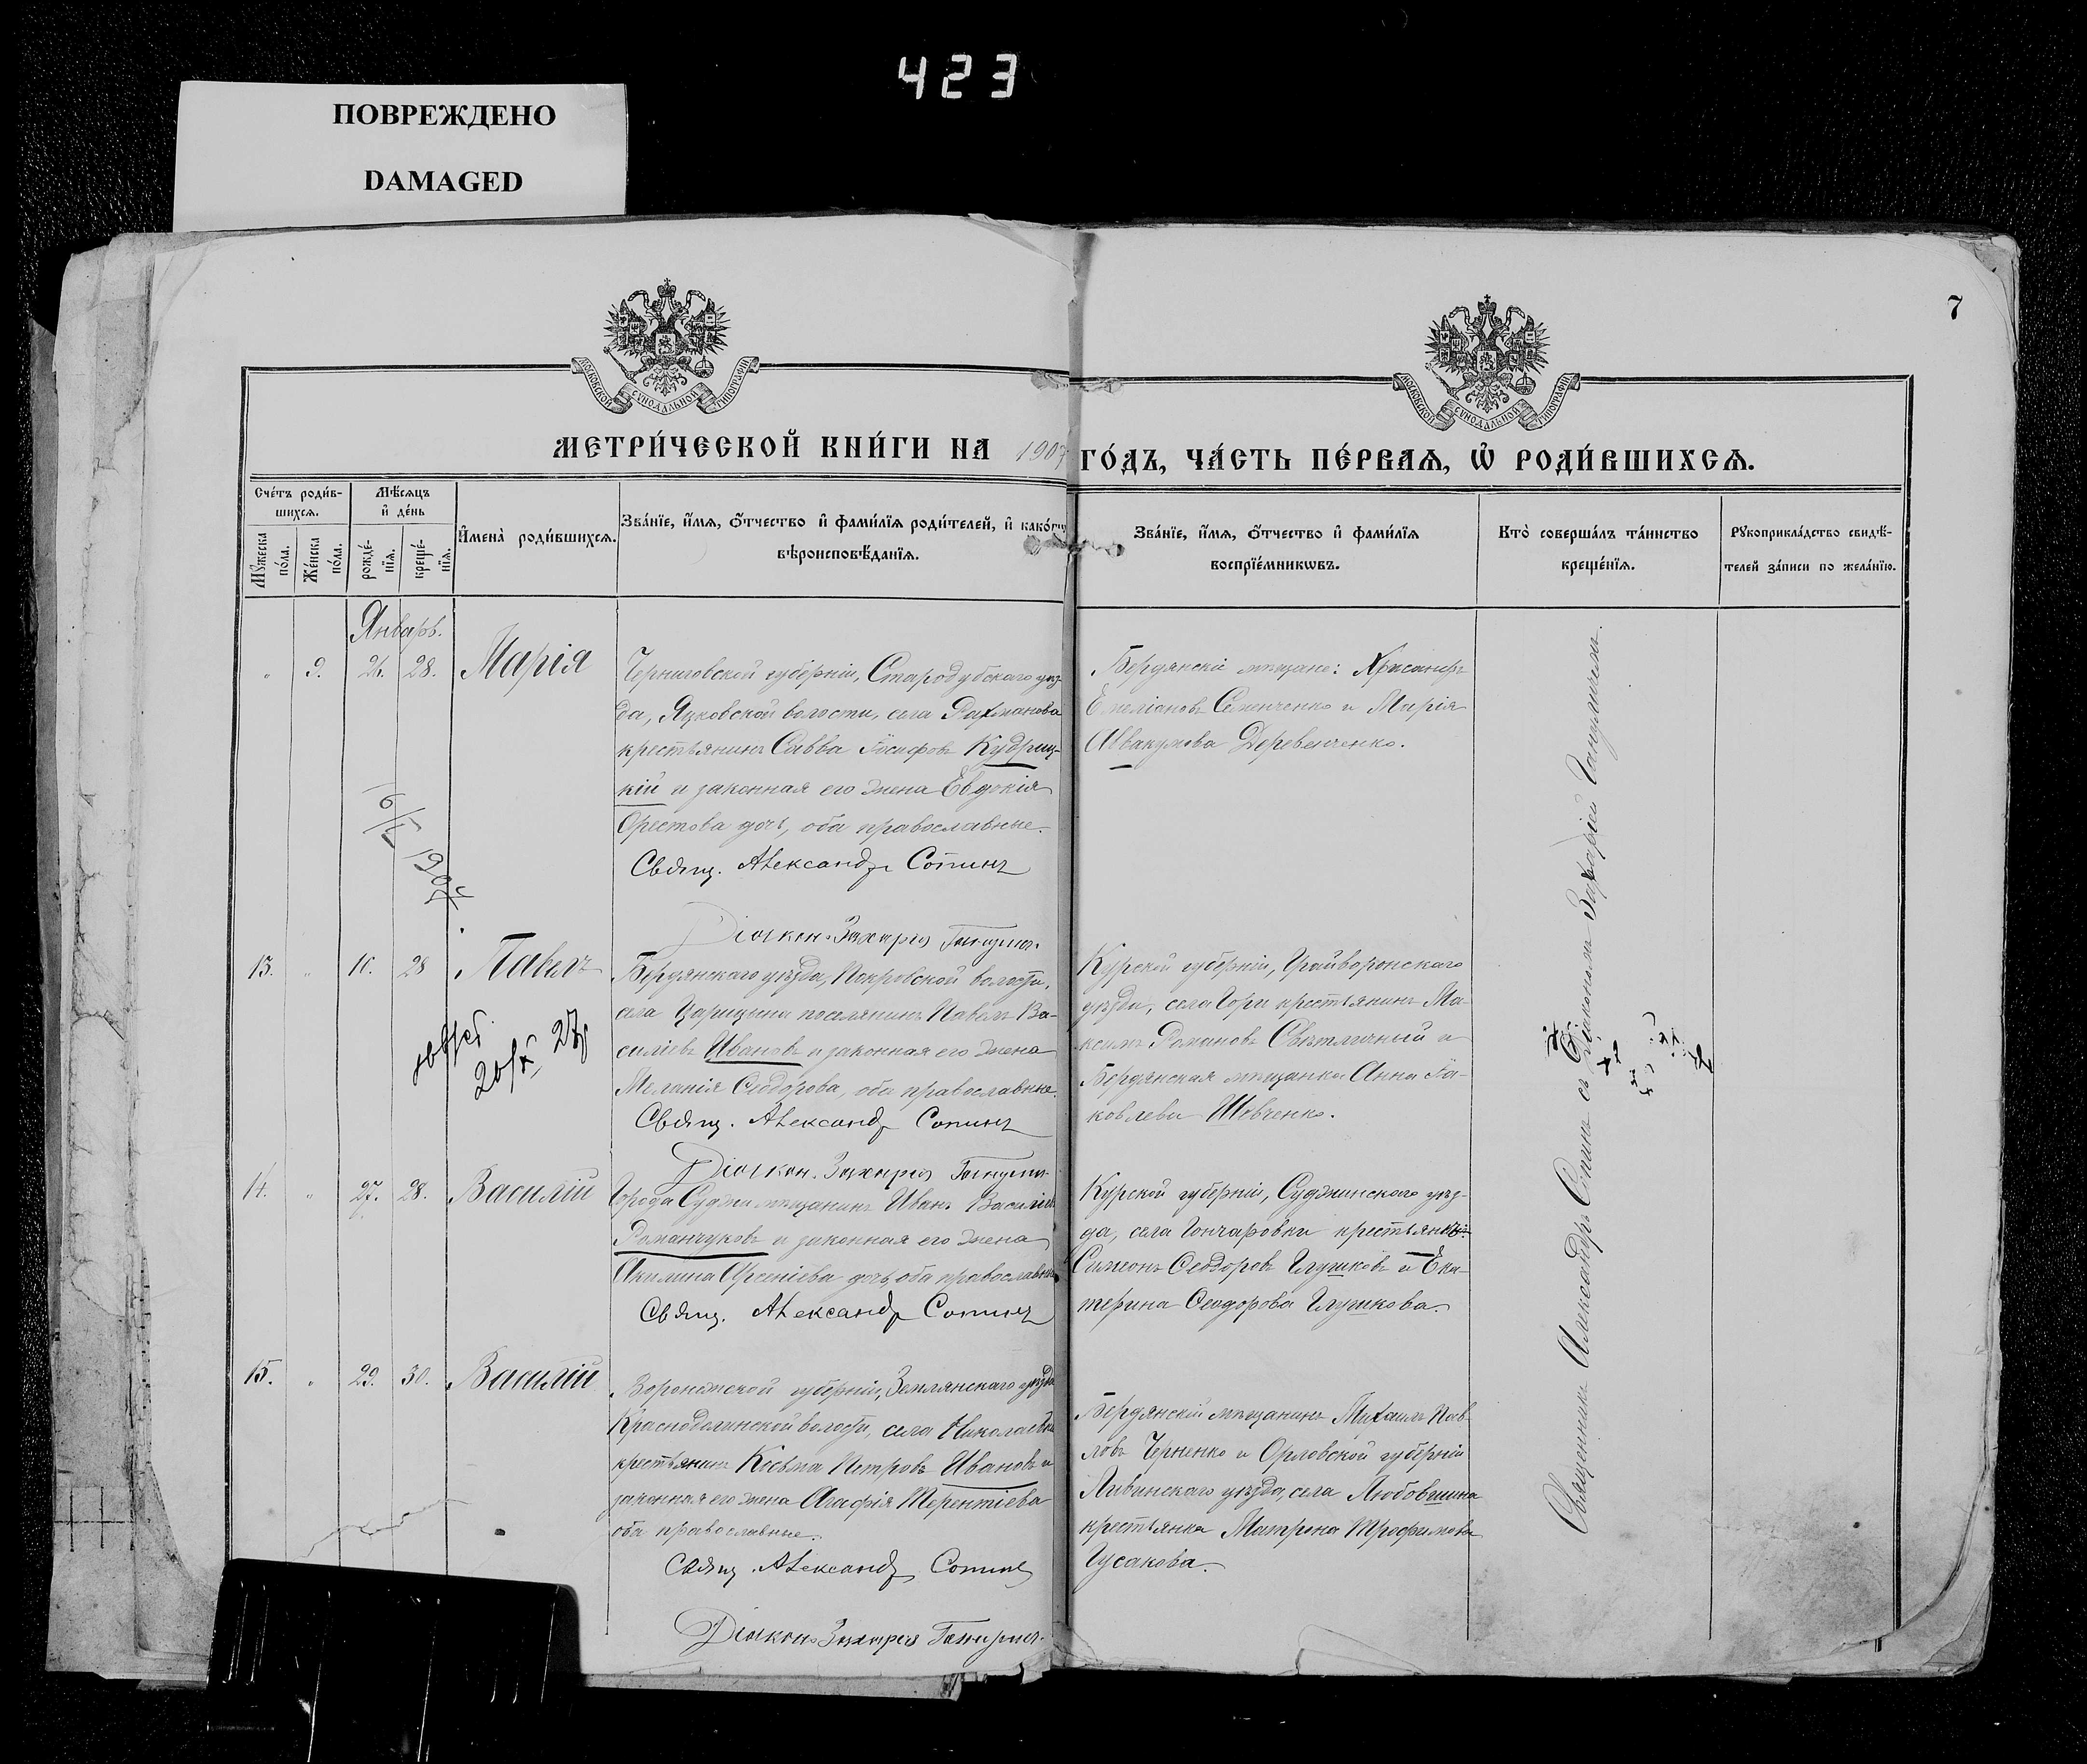 423
ПОВРЕЖДЕНО
DAMAGED
7
МОСКОВСКОЙ СѴНОДАЛЬНОЙ ТИПОГРАФІИ
МОСКОВСКОЙ СѴНОДАЛЬНОЙ ТИПОГРАФІИ
МЕТРИ́ЧЕСКОЙ КНИ́ГИ НА 1907 ГО́ДЪ, ЧА́СТЬ ПЕ́РВАЯ, Ѡ҆ РОДИ́ВШИХСЯ.
Сче́тъ роди́в-
шихся.
Мꙋ́жеска по́ла.
Же́нска по́ла.
Мѣ́сяцъ
и҆ де́нь
рожде́-
нїя.
креще́-
нїя.
И҆мена̀ роди́вшихся.
Зва́нїе, и҆́мя, ѻ҆́тчество и҆ фами́лїя роди́телей, и҆ како́гѡ
вѣроисповѣ́данїя.
Зва́нїе, и҆́мя, ѻ҆́тчество и҆ фами́лїя
воспрїе́мникѡвъ.
Кто̀ соверша́лъ та́инство
креще́нїя.
Рꙋкоприкла́дство свидѣ́-
телей за́писи по жела́нїю.
Январь.
„ 9. 26. 28. Марія
Черниговской губерніи, Стародубскаго уѣз-
да, Яцковской волости, села Рахманова
крестьянинъ Савва Іосифовъ Кудриц-
кій и законная его жена Евдокія
Орестова дочь, оба православные.
Свящ. Александръ Сопинъ
Діаконъ Захарія
Бердянскіе мѣщане: Хрисанфъ
Емеліановъ Семенченко и Марія
Аввакумова Деревенченко.
13. „ 10. 28 Павелъ
Бердянскаго уѣзда, Покровской волости,
села Царицына поселянинъ Павелъ Ва-
силіевъ Ивановъ и законная его жена
Меланія Ѳеодорова, оба православные.
Свящ. Александръ Сопинъ
Діаконъ Захарія
Курской губерніи, Грайворонскаго
уѣзда, села Гори крестьянинъ Ма-
ксимъ Романовъ Свѣтличный и
Бердянская мѣщанка Анна Іа-
ковлева Шевченко.
20/X 27
14. „ 27. 28. Василій
Города Суджи мѣщанинъ Иванъ Василіевъ
Романчуковъ и законная его жена
Акилина Арсеніева дочь, оба православные
Свящ. Александръ Сопинъ
Курской губерніи, Суджинскаго уѣз-
да, села Гончаровки крестьяне:
Симеонъ Ѳеодоровъ Глушковъ и Ека-
терина Ѳеодорова Глушкова.
15. „ 29. 30. Василій
Воронежской губерніи, Землянскаго уѣзда
Краснодолинской волости, села Николаевки
крестьянинъ Косьма Петровъ Ивановъ и
законная его жена Агафія Терентіева
оба православные.
Свящ. Александръ Сопинъ
Діаконъ Захарія
Бердянскій мѣщанинъ Михаилъ Пав-
ловъ Черненко и Орловской губерніи
Ливинскаго уѣзда, села Любовшина
крестьянка Матрона Трофимова
Гусакова.
Священникъ Александръ Сопинъ съ Діакономъ Захаріей